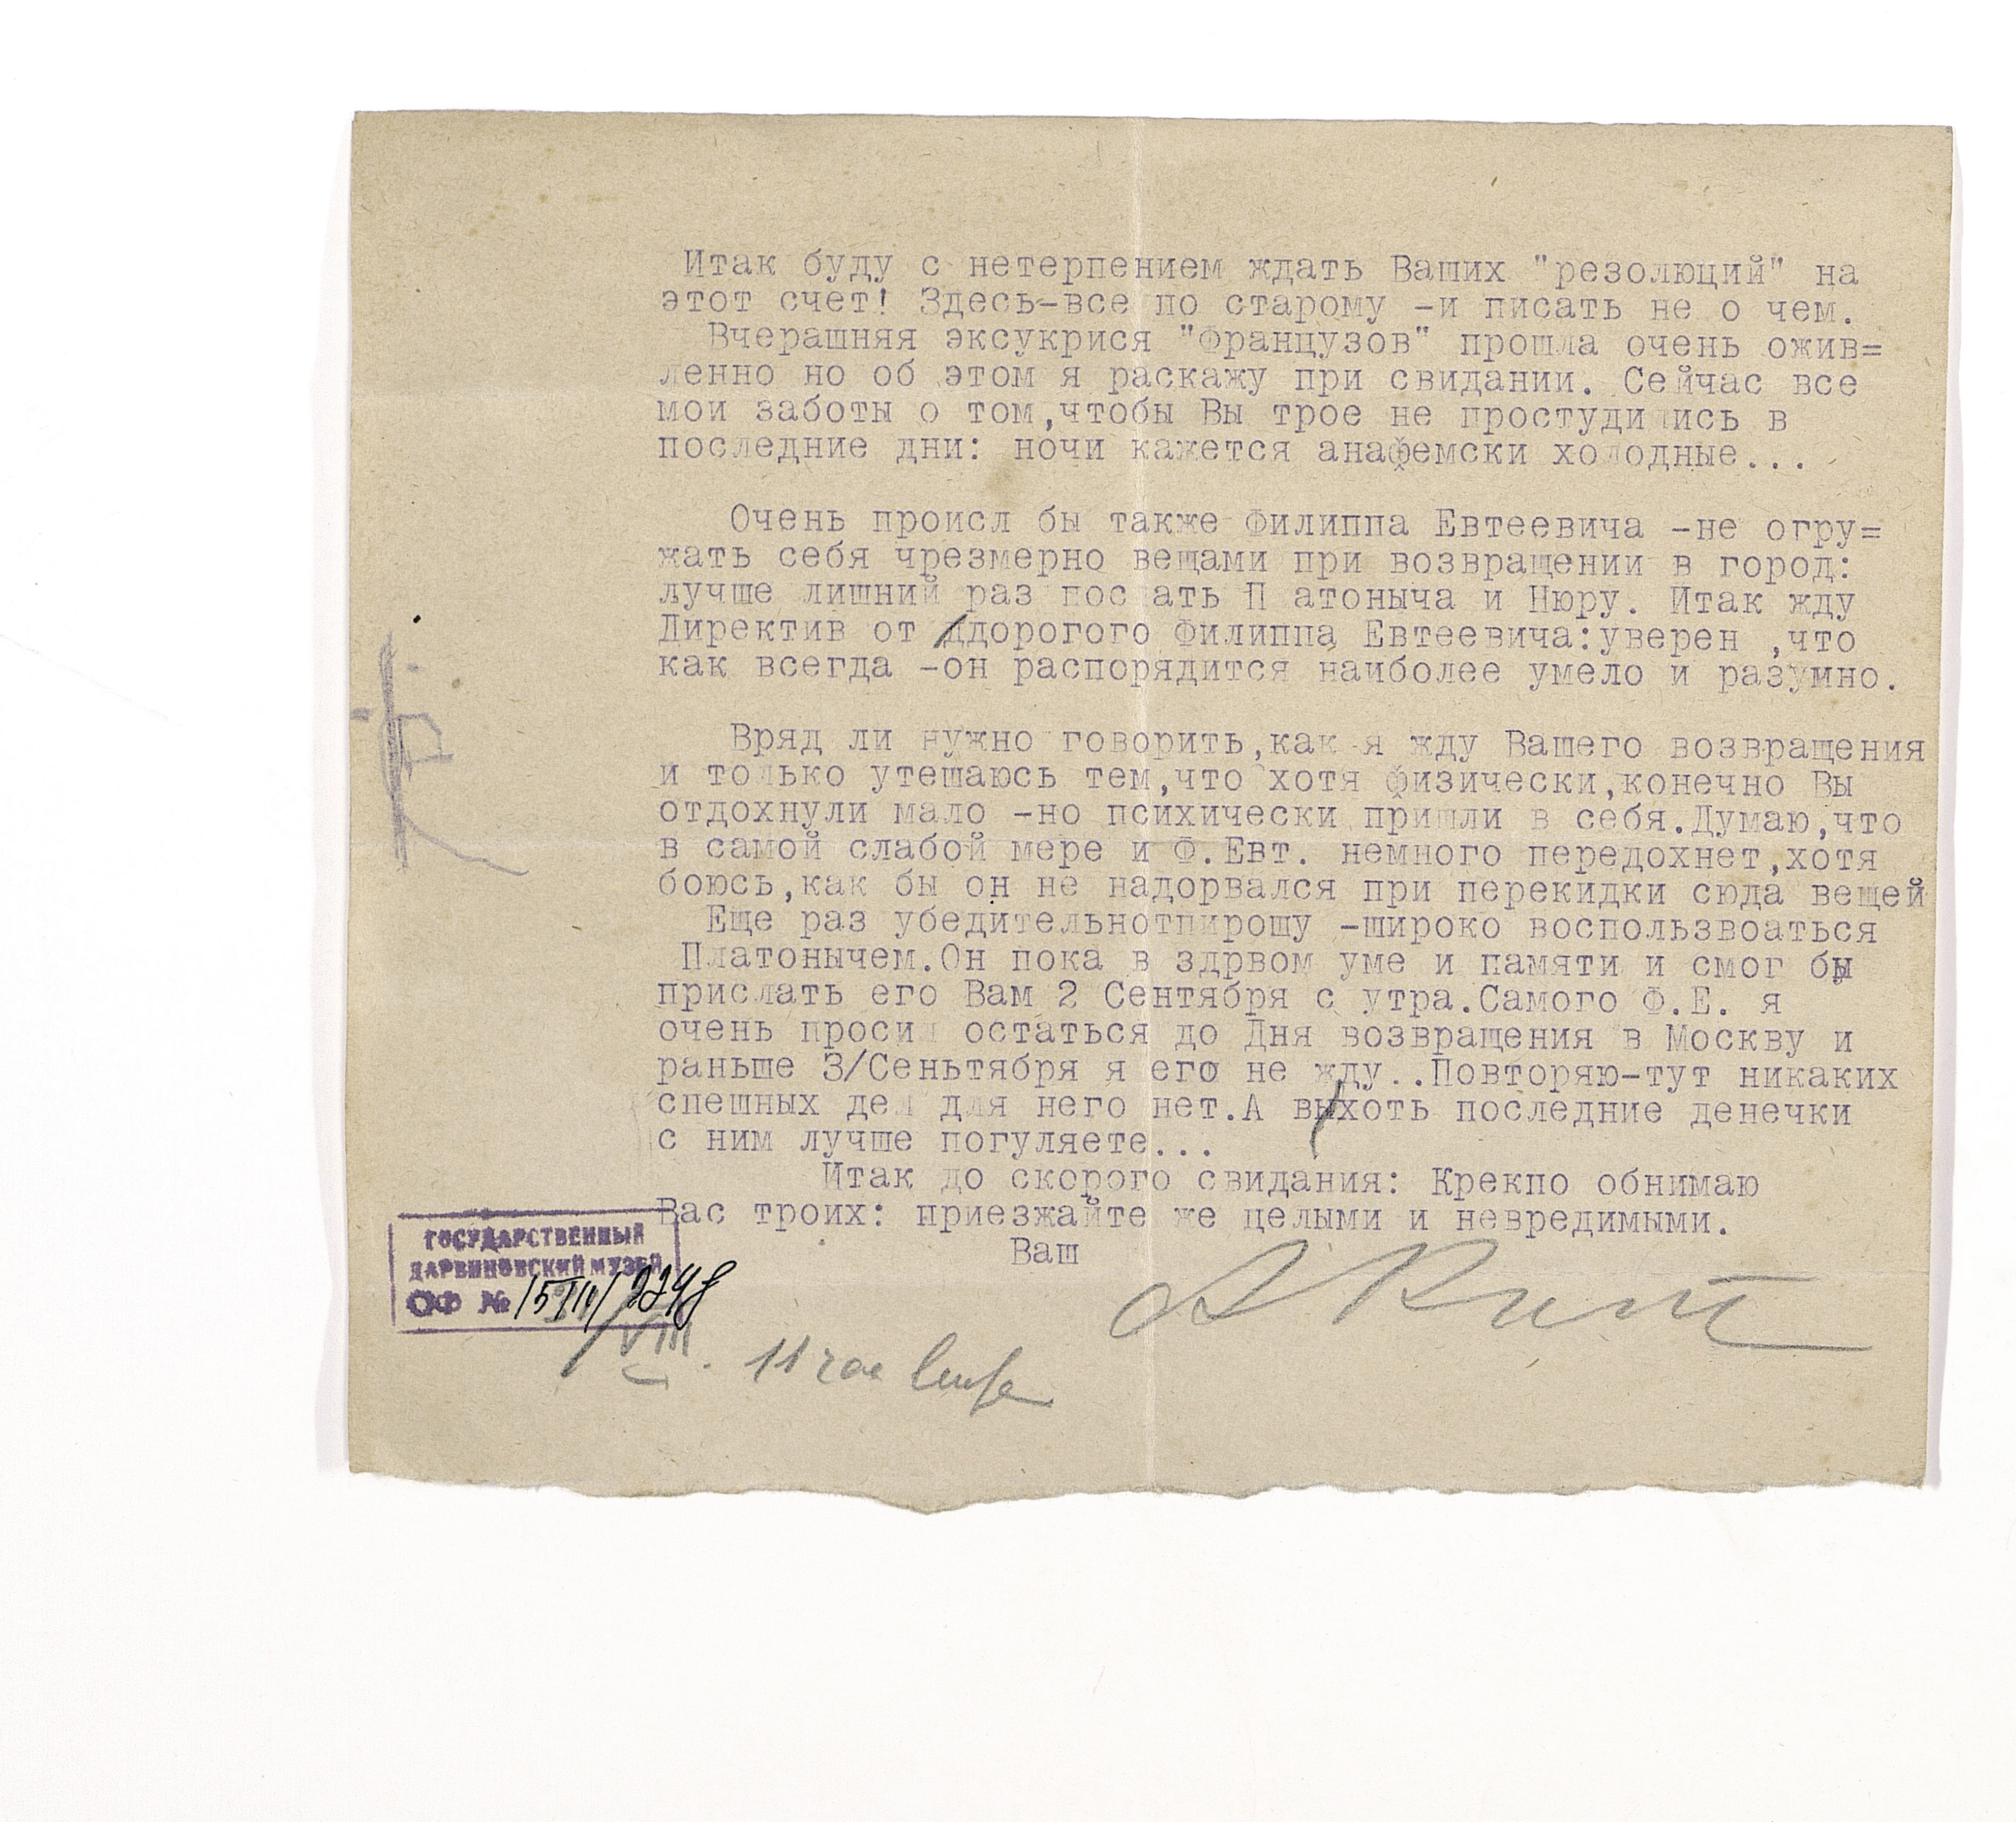 Итак буду с нетерпением ждать Ваших "резолюций" на
этот счет! Здесь-все по старому -и писать не о чем.
Вчерашняя эксукрися "Французов" прошла очень ожив=
ленно но об этом я раскажу при свидании. Сейчас все
мои заботы о том,чтобы Вы трое не простудились в
последние дни: ночи кажется анафемски холодные...
Очень происл бы также Филиппа Евтеевича -не огру=
жать себя чрезмерно вещами при возвращении в город:
лучше лишний раз послать Платоныча и Нюру. Итак жду
Директив от ддорогого Филиппа Евтеевича:уверен ,что
как всегда -он распорядится наиболее умело и разумно.
Вряд ли нужно говорить,как я жду Вашего возвращения
и только утешаюсь тем,что хотя физически,конечно Вы
отдохнули мало -но психически пришли в себя.Думаю,что
в самой слабой мере и Ф.Евт. немного передохнет,хотя
боюсь,как бы он не надорвался при перекидки сюда вещей
Еще раз убедительнотпирошу -широко воспользвоаться
Платонычем.Он пока в здрвом уме и памяти и смог бы
прислать его Вам 2 Сентября с утра.Самого Ф.Е. я
очень просил остаться до Дня возвращения в Москву и
раньше 3/Сеньтября я его не жду..Повторяю-тут никаких
спешных дел для него нет.А вы хоть последние денечки
с ним лучше погуляете...
Итак до скорого свидания: Крекпо обнимаю
Вас троих: приезжайте же целыми и невредимыми.
Ваш
ГОСУДАРСТВЕННЫЙ
ДАРВИНОВСКИЙ МУЗЕЙ
ОФ №
VIII